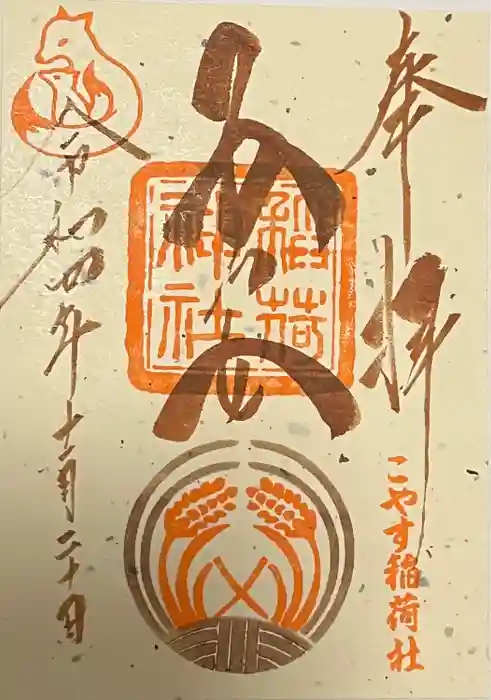 奉拝
こやす稲荷社
稲荷
神社
令和四年十一月二十日